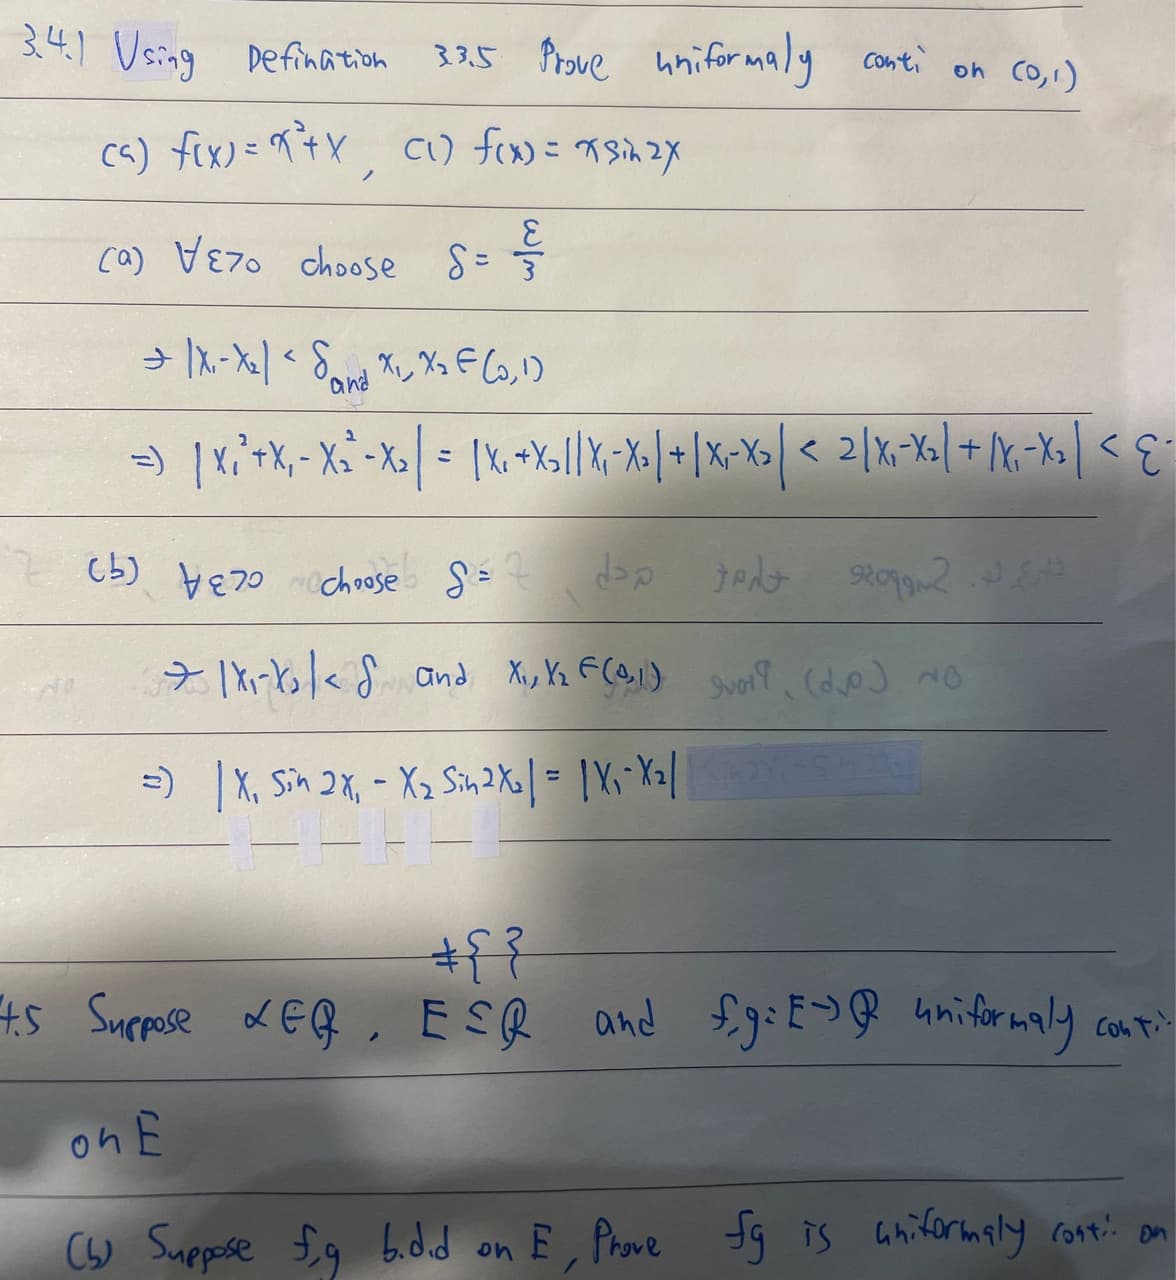 3.4.1 Using Defination 3.3.5 Prove uniformaly conti on (0,1)
(a) f(x)=x²+x, (c) f(x)=x sin2x
(a) ∀ε>0 choose δ=ε/3
∋ |x₁-x₂|<δ and x₁, x₂∈(0,1)
⇒ |x₁²+x₁-x₂²-x₂| = |x₁+x₂||x₁-x₂|+|x₁-x₂| < 2|x₁-x₂|+|x₁-x₂| < ε.
(b) ∀ε>0 choose δ=
∋ |x₁-x₂|<δ and x₁, x₂∈(0,1)
⇒ |x₁ sin 2x₁ - x₂ sin2x₂| = |x₁-x₂|
≠{ }
4.5 Suppose α∈R, E⊆R and f,g:E→R uniformaly conti.
on E
(b) Suppose f,g b.d.d on E, Prove fg is uniformaly conti. on